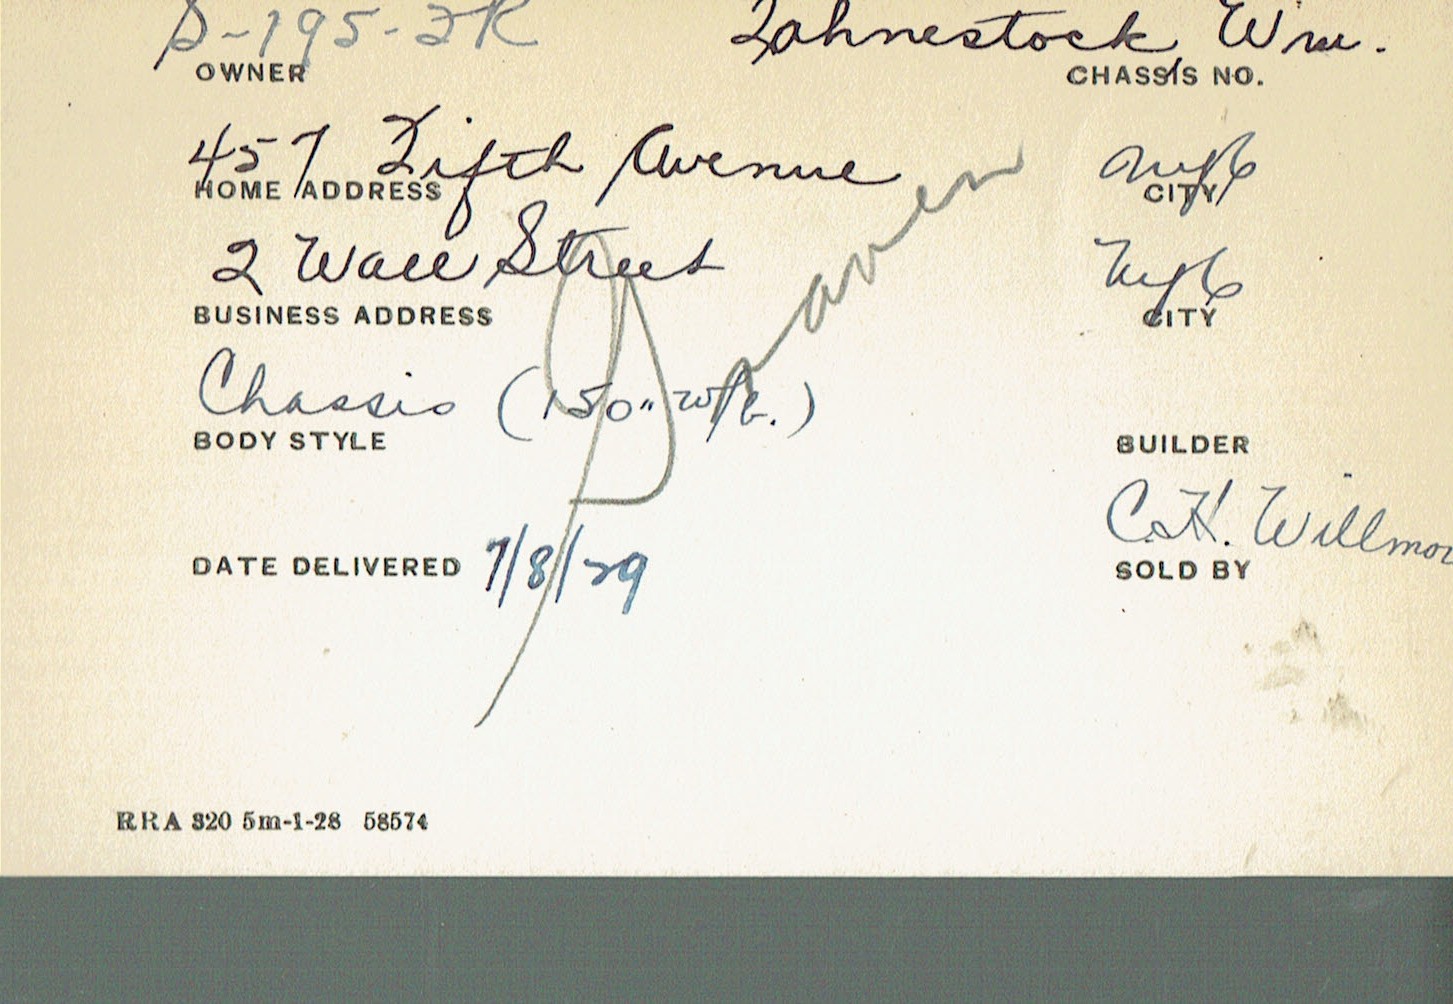 S-195-2R Fahnestock, Wm.
OWNER CHASSIS NO.
457 Fifth Avenue NYC
HOME ADDRESS CITY
2 Wall Street NYC
BUSINESS ADDRESS CITY
Chassis (150" W/B.)
BODY STYLE BUILDER
C.H. Willmo
DATE DELIVERED 7/8/29 SOLD BY
RRA 320 5m-1-28 58574